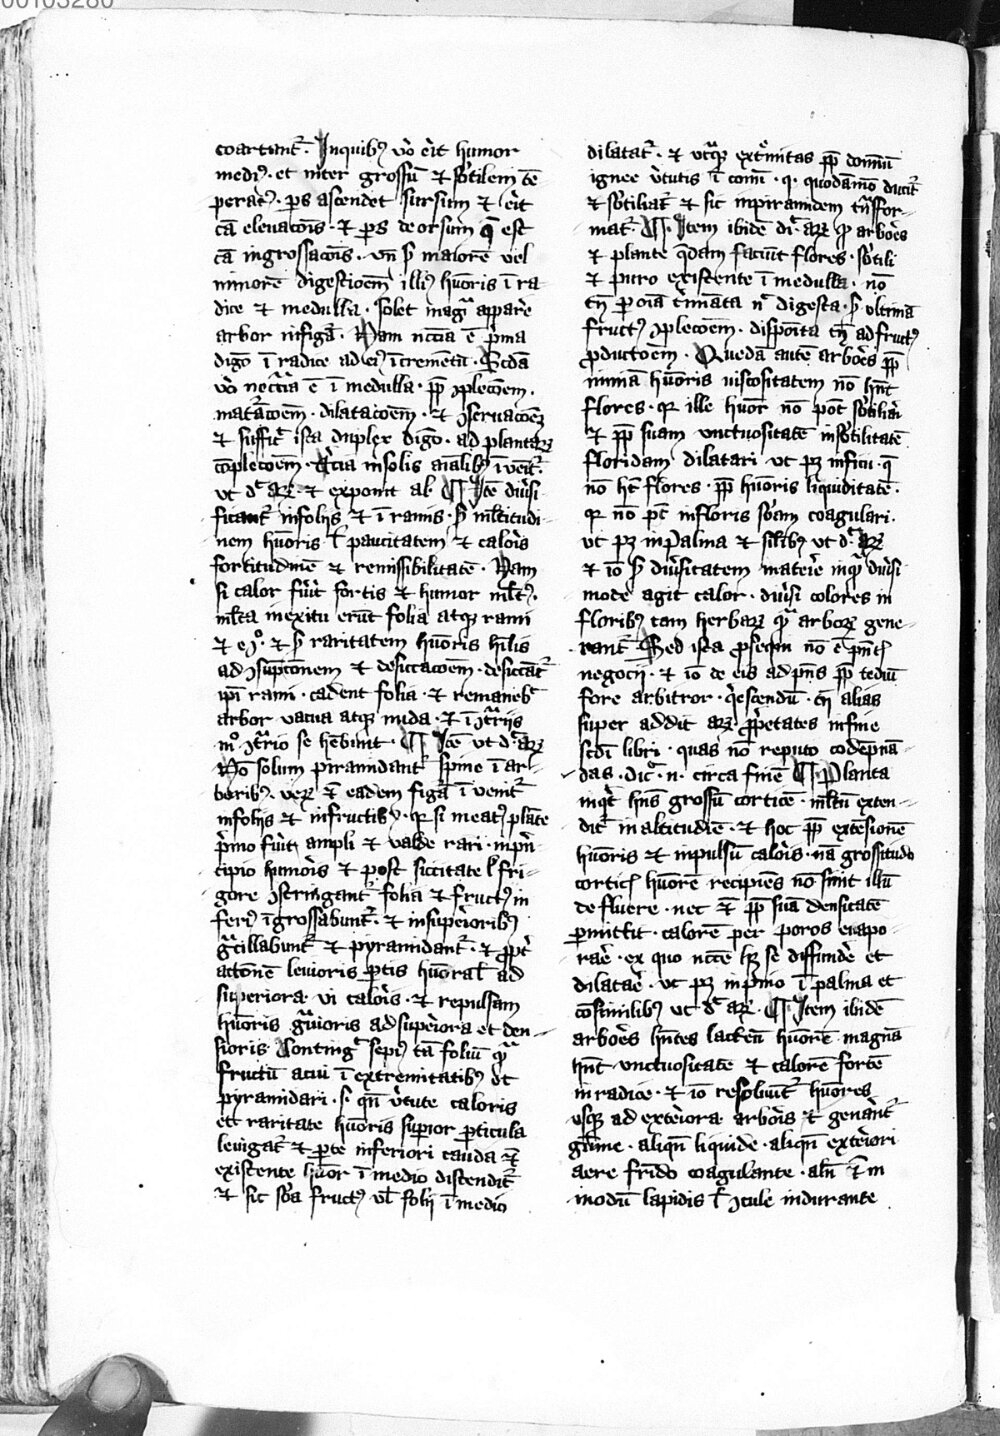 00103280
coartant᷑. Inquibꝰ v̊o erit humor
mediꝰ. et inter grossū et sb̓tilem tē
peratꝰ. ps ascendet sursum et erit
cā eleuacōis. et ps deorsum q̄ est
cā ingrossacōis. vn̄ ẜ maiorē vel
minorē digestioem illiꝰ hūoris ī ra
dice et medulla. solet mag̓ apparē
arbor in figā. Nam nccīa ē p̓ma
digō ī radice ad eiꝰ īcremētū. Scdā
v̊o neccīa ē ī medulla. pp̄ ꝯplecōem.
matācōem. dilatacōem. et ꝯseruacōeꝫ
et suffic᷑ ista duplex digō. ad plantaꝝ
cōplecōem. Tc̓ia in solis aīalibꝰ īuēit᷑.
ut d᷑ ar. et exponit al. ¶ Itē diu̓si
ficant᷑ in folijs et ī ramis. ẜ ml̓titudi
nem hūoris ł paucitatem et caloris
fortitudinē et remissibilitatē. Nam
si calor fu̓it fortis et humor ml̓tꝰ.
ml̓ta in exitu erūt folia atqꝫ rami
et eꝯ̊. et ẜ raritatem hūoris hīlis
ad ꝯsūptionem et desiccacōem. desiccāt᷑
ip̄i rami. cadent folia. et remaneb᷑
arbor vacua atqꝫ nuda. et ī ꝯt̓rijs
mō ꝯt̓rio se hēbunt. ¶ Itē ut d᷑ ar
Nō solum piramidant᷑ spine ī ar
boribꝰ. veꝝ et̄ eadem figā īuenit᷑
in folijs et in fructibꝰ. qꝛ si meatꝰ plāte
p̓mo fuit̓ ampli et valde rari. in p̓n
cipio humoris et post siccitate ł fri
gore ꝯstringant᷑ folia et fructꝰ in
feriꝰ īgrossabunt᷑. et in superioribꝰ
g̓cillabunt᷑ et pyramidant᷑. et ꝓpt̓
actionē leuioris ꝑtis hūoral̓ ad
superiora vi caloris. et repulsam
hūoris g̓uioris ad superiora et den
sioris. Conting᷑ sepiꝰ tā foliū qᷓ
fructū acui ī extremitatibꝰ ut
pyramidari. s. qn̄ v̓tute caloris
et raritate hūoris supior ꝑticula
leuigat᷑ et ꝑte inferiori cauda et̄
existente hūor ī medio distendit᷑
et sic foīa fructꝰ vł folij ī medio
dilatat᷑. et ut̓qꝫ extᷓmitas pp̄ domīū
ignee v̓tutis ī com̄. q. quodāmō ducit᷑
et sb̓tiliat᷑ et sic in piramidem tn̄sfor
mat᷑. ¶ Item ibidē di᷑ ar. ꝙ arbores
et plante q̄dam faciūt flores. sb̓tili
et puro existente ī medulla. nō
tn̄ ꝑ oīa t̓minata nc̄ digesta. ẜ vltimā
fructꝰ ꝯplecōem. disposita tn̄ ad fructꝰ
ꝓductoem. Quedā autē arbores pp̄
nimiā hūoris uiscositatem nō hn̄t
flores. qꝛ ille hūor nō pōt sb̓tiliari
et pp̄ suam vnctuositatē in sb̓tilitatē
floridam dilatari ut pꝫ in ficu. q̄
nō hꝫ flores. pp̄ hūoris liquiditatē.
qꝛ nō pōt in floris foīam coagulari.
ut pꝫ in palma et sīlibꝰ ut d᷑ ar
et iō ẜ diu̓sitatem materie in qᷓ diu̓si
mode agit calor. diu̓si colores in
floribꝰ tam herbaꝝ qᷓ arboꝝ gene
rant᷑. Sed ista ꝓsequi nō ē p̄ntꝭ
negocij. et iō de eis ad p̄ns pp̄ tediū
fore arbitror. q̓escendū. tn̄ alias
super addit ar. ꝓp̓etates in fine
scdī libri. quas nō reputo cōdēpnā
das. dic᷑. n. circa finē ¶ Planta
inq̓t hn̄s grossū corticē. ml̓tū exten
dit᷑ in altitudīe. et hoc pp̄ extēsionē
hūoris et inpulsū caloris. nā grossitudo
corticꝭ hūorē recipiēs nō sinit illū
defluere. nec et̄ pp̄ suā densitatē
ꝑmittit. calorē per poros euapo
rarē. ex quo nccē hꝫ se diffundē et
dilatarē. ut pꝫ in pino ī palma et
cōsimilibꝰ ut d᷑ ar. ¶ Item ibidē
arbores hn̄tes lacteū hūorē. magnā
hn̄t vnctuositatē et calorē fortē
in radice. et iō resoluūt᷑ hūores
vsqꝫ ad exteriora arboris et gen̄ant᷑
gūme. aliqn̄ liquide. aliqn̄ exteriori
aere frīdo coagulante. aln̄ et̄ in
modū lapidis ł ꝯcule indurante